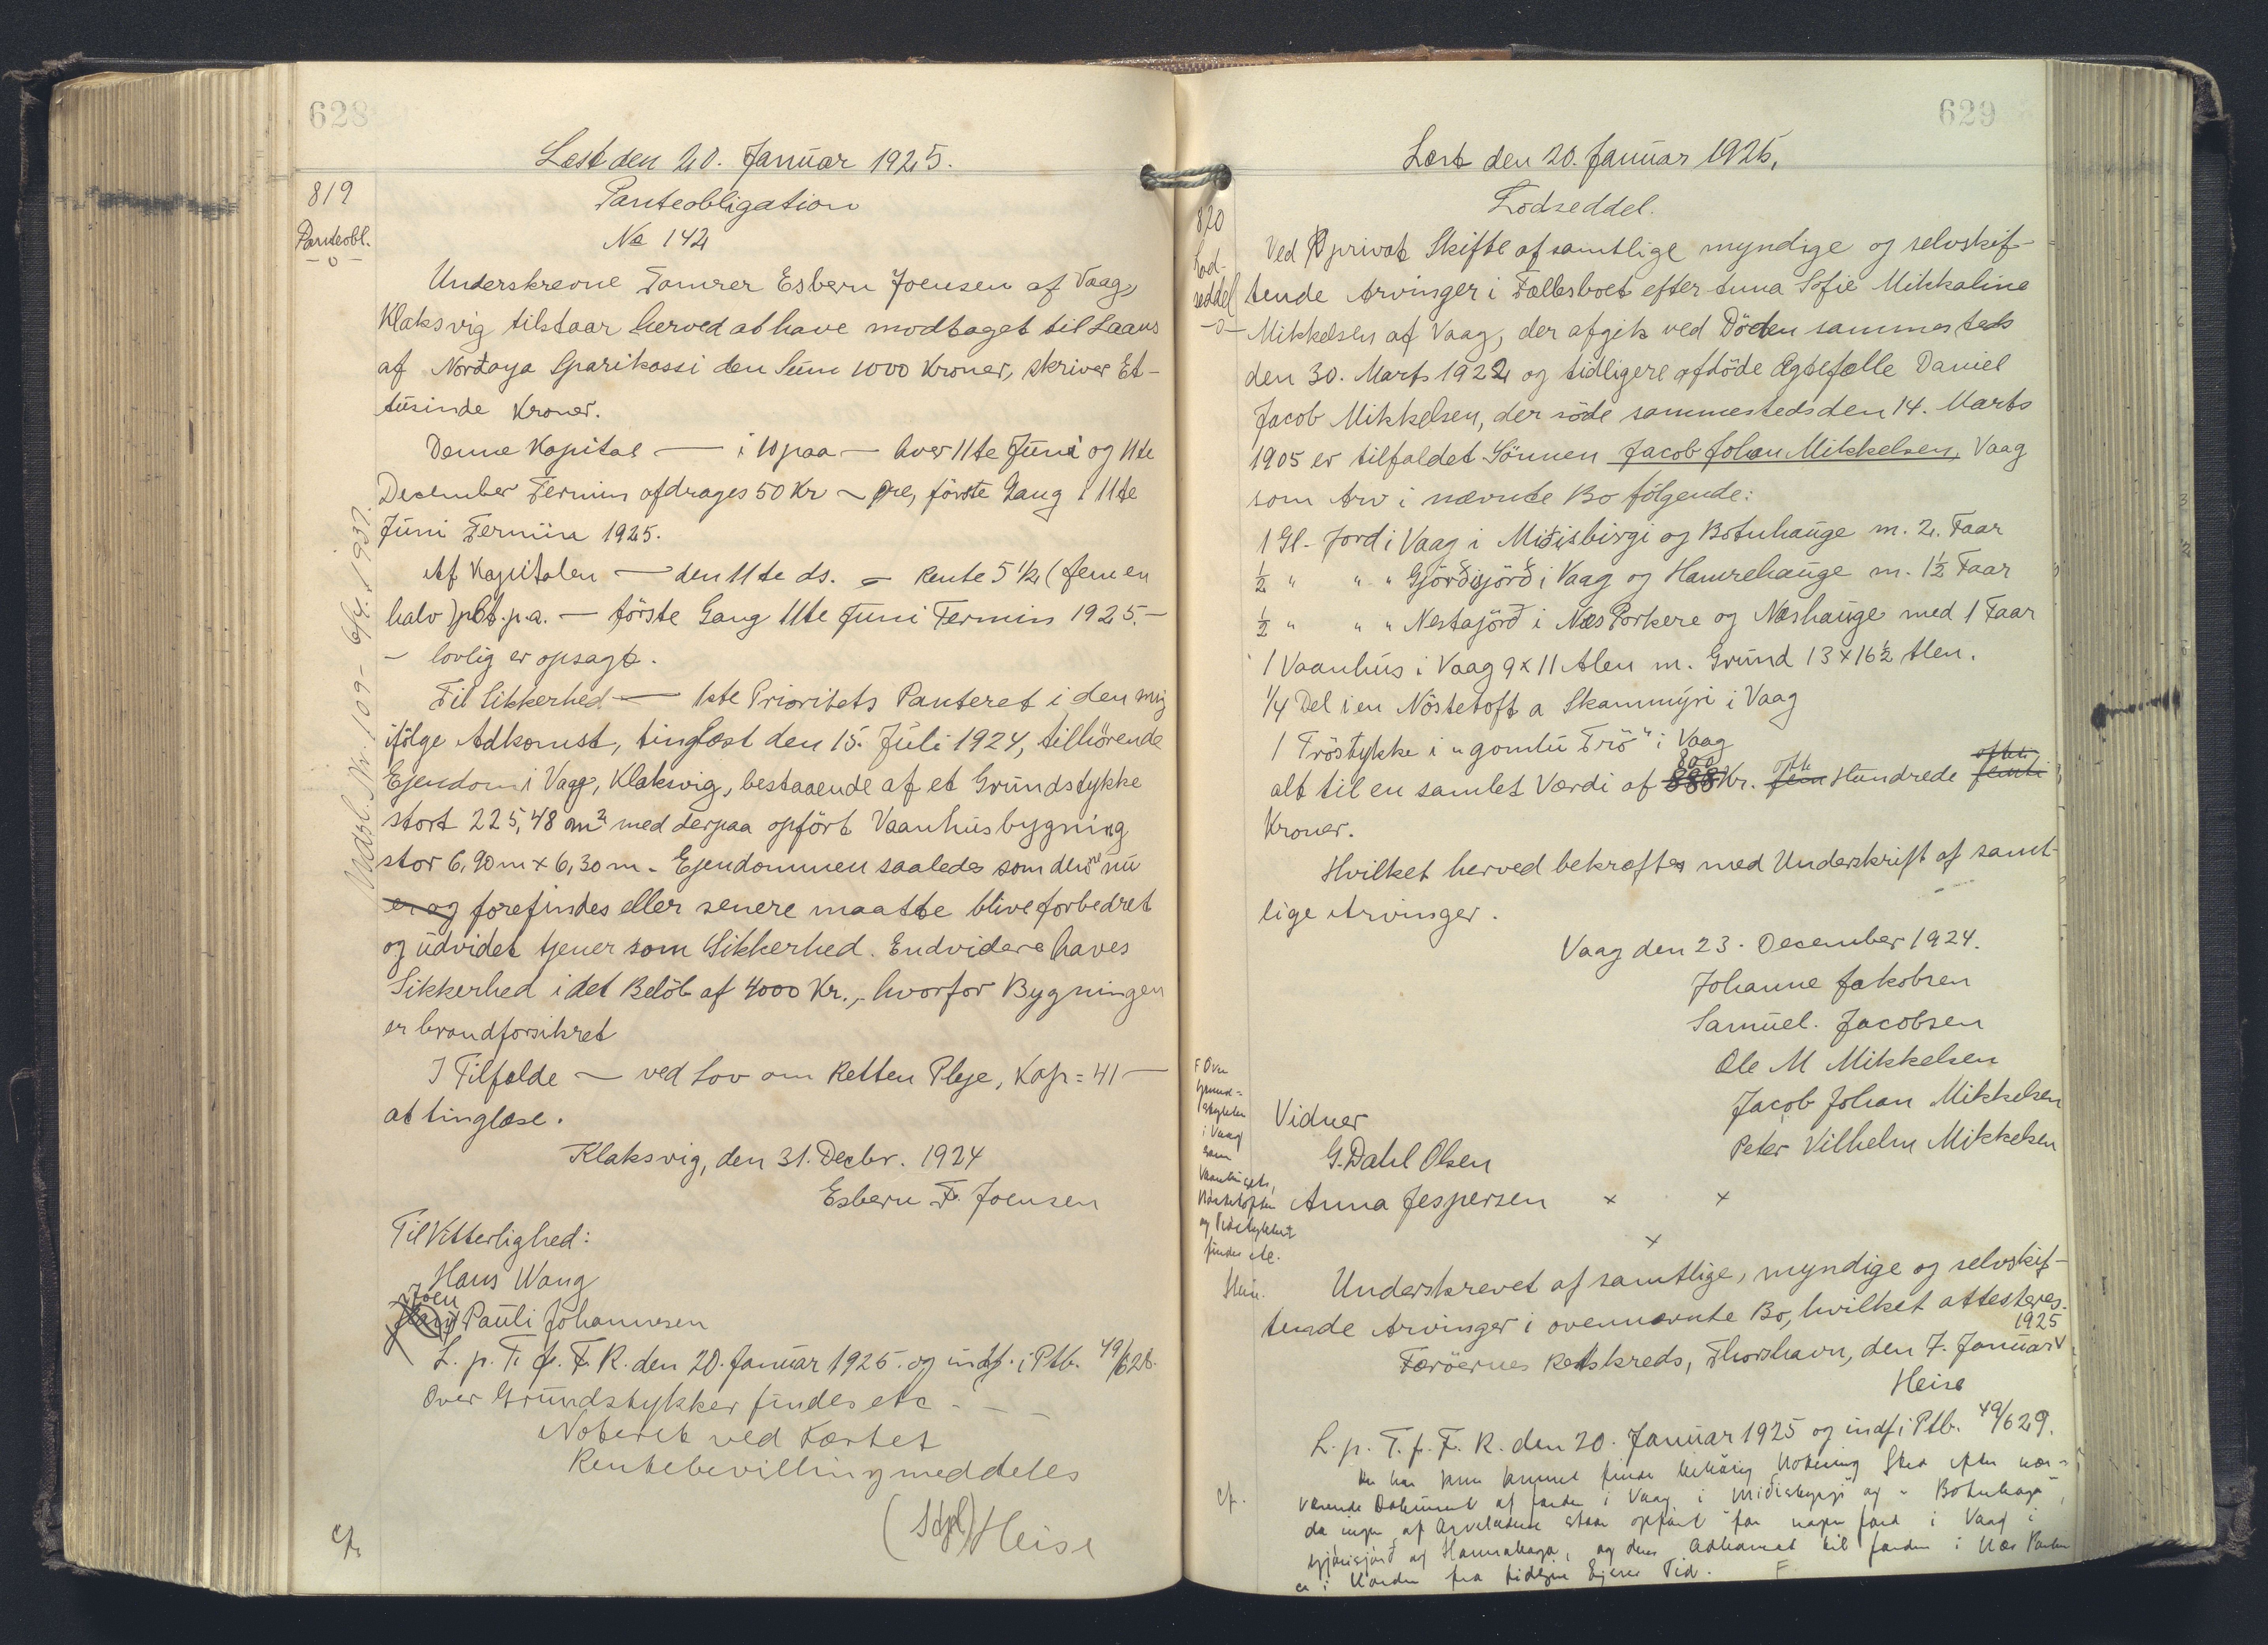 628
Læst den 20. Januar 1925.
819
Panteobl.
Panteobligation
No 142
Underskrevne Tømrer Esbern Joensen af Vaag,
Klaksvig tilstaar herved at have modtaget til Laans
af Norđoya Sparikassi den Sum 1000 Kroner, skriver Et-
tusinde Kroner.
Denne Kapital — i 10 paa — hver 11te Juni og 11te
December Termin afdrages 50 Kr — første Gang i 11te
Juni Termin 1925.
Af Kapitalen — den 11te ds. — Rente 5 1/2 (fem en
halv) pCt. p.a. — første Gang 11te Juni Termin 1925. —
— lovlig er opsagt.
Til Sikkerhed — 1ste Prioritets Panteret i den mig
ifølge Adkomst, tinglæst den 15. Juli 1924, tilhørende
Ejendom i Vaag, Klaksvig, bestaaende af et Grundstykke
stort 225,48 m² med derpaa opført Vaanhusbygning
stor 6,90 m x 6,30 m. Ejendommen saaledes som den nu
er og forefindes eller senere maatte blive forbedret
og udvidet tjener som Sikkerhed. Endvidere haves
Sikkerhed i det Beløb af 4000 Kr., hvorfor Bygningen
er brandforsikret
I Tilfælde — ved Lov om Retten Pleje, Kap = 41 —
at tinglæse.
Klaksvig, den 31. Decbr. 1924
Esbern F. Joensen
Til Vitterlighed:
Hans Wang
Joen
Pauli Johannesen
L. p. T. f. F. R. den 20. Januar 1925. og indf. i Ptb. 49/628.
Over Grundstykker findes etc. — —
Noteret ved Kortet
Rentebevilling meddeles
Heise
cf.
Udsl. Nr. 109 - 6/4. 1937.
629
Læst den 20. Januar 1925.
820
Lod-
seddel
Lodseddel.
Ved privat Skifte af samtlige myndige og selvskif-
tende Arvinger i Fællesboet efter Anna Sofie Mikkaline
Mikkelsen af Vaag, der afgik ved Döden sammesteds
den 30. Marts 1922 og tidligere afdöde Ægtefælle Daniel
Jacob Mikkelsen, der döde sammesteds den 14. Marts
1905 er tilfaldet Sönnen Jacob Johan Mikkelsen, Vaag
som Arv i nævnte Bo fölgende:
1 Gl. Jord i Vaag i Miđisbirgi og Botnhauge m. 2. Faar
1/2 " " " Gjörđisjörđ i Vaag og Hamrehauge m. 1 1/2 Faar
1/2 " " " Nestajörđ i Næs Porkere og Næshauge med 1 Faar
1 Vaanhus i Vaag 9 x 11 Alen m. Grund 13 x 16 1/2 Alen.
1/4 Del i en Nöstetoft a Skammýri i Vaag
1 Tröstykke i "gomlu Trö" i Vaag
800
alt til en samlet Værdi af 888 Kr. fem otte Hundrede femti otteti
Kroner.
Hvilket herved bekræftes med Underskrift af samt-
lige Arvinger.
Vaag den 23. December 1924.
Johanne Jakobsen
Samuel. Jacobsen
Ole M Mikkelsen
Jacob Johan Mikkelsen
Peter Vilhelm Mikkelsen
Vidner
G. Dahl Olsen
Anna Jespersen x x
x
F Over
Grund=
stykkerne
i Vaag
samt
Vaanhuset,
Nöstetoften
og Tröstykket
findes etc.
Heise.
Underskrevet af samtlige, myndige og selvskif-
tende Arvinger i ovennævnte Bo, hvilket attesteres.
Færöernes Retskreds, Thorshavn, den 7. Januar 1925
Heise
L. p. T. f. F. R. den 20. Januar 1925 og indf. i Ptb. 49/629.
Der har kun kunnet finde behörig Notering Sted efter nær-
værende Dokument af Jorden i Vaag i Miđisbyrgi og "Botnhaga",
da ingen af Arveladerne staar opfört for nogen Jord i Vaag i
Gjörđisjörđ og Hamrahaga, og deres Adkomst til Jorden i Næs Porkere
er i Orden fra tidligere Ejeres Tid. F
cf.